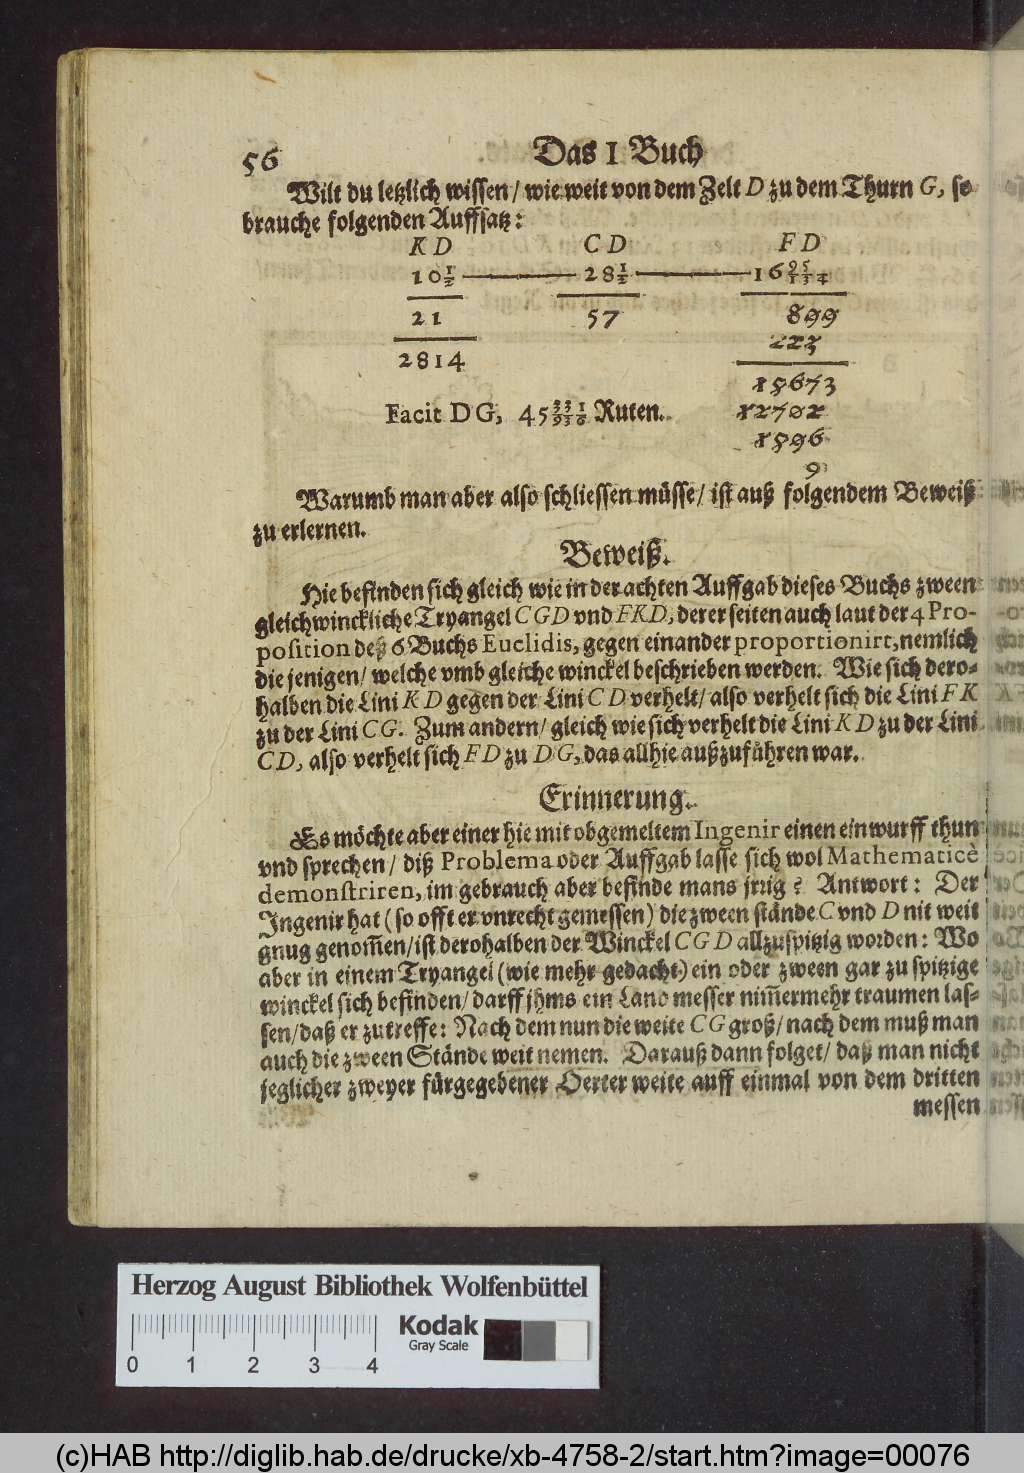 56 Das I Buch
Wilt du letzlich wissen / wie weit von dem Zelt D zu dem Thurn G, so
brauche folgenden Auffsatz:
K D C D F D
10 1/2 28 1/2 16
21 57 899
2814
15673
12702
1596
9
Facit D G, 45 Ruten.
Warumb man aber also schliessen müsse / ist auß folgendem Beweiß
zu erlernen.
Beweiß.
Hie befinden sich gleich wie in der achten Auffgab dieses Buchs zween
gleichwinckliche Tryangel C G D vnd F K D, derer seiten auch laut der 4 Pro-
position deß 6 Buchs Euclidis, gegen einander proportionirt, nemlich
die jenigen / welche vmb gleiche winckel beschrieben werden. Wie sich dero-
halben die Lini K D gegen der Lini C D verhelt / also verhelt sich die Lini F K
zu der Lini C G. Zum andern / gleich wie sich verhelt die Lini K D zu der Lini
C D, also verhelt sich F D zu D G, das allhie außzuführen war.
Erinnerung.
Es möchte aber einer hie mit obgemeltem Ingenir einen einwurff thun
vnd sprechen / diß Problema oder Auffgab lasse sich wol Mathematicè
demonstriren, im gebrauch aber befinde mans jrrig? Antwort: Der
Ingenir hat (so offt er vnrecht gemessen) die zween stände C vnd D nit weit
gnug genom̄en / ist derohalben der Winckel C G D allzuspitzig worden: Wo
aber in einem Tryangel (wie mehr gedacht) ein oder zween gar zu spitzige
winckel sich befinden / darff jhms ein Land messer nim̄ermehr traumen las-
sen / daß er zutreffe: Nach dem nun die weite C G groß / nach dem muß man
auch die zween Stände weit nemen. Darauß dann folget / daß man nicht
jeglicher zweyer fürgegebener Oerter weite auff einmal von dem dritten
messen
Herzog August Bibliothek Wolfenbüttel
0 1 2 3 4
Kodak
Gray Scale
(c)HAB http://diglib.hab.de/drucke/xb-4758-2/start.htm?image=00076